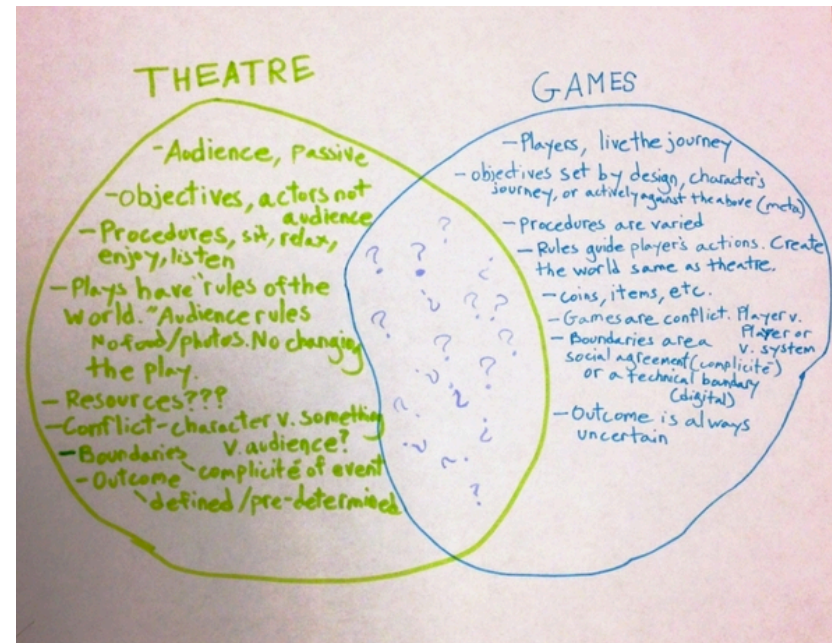 THEATRE
- Audience, passive
- Objectives, actors not
audience
- Procedures, sit, relax,
enjoy, listen
- Plays have "rules of the
world." Audience rules
No food/photos. No changing
the play.
- Resources???
- Conflict - character v. something
v. audience?
- Boundaries
complicité of event
- Outcome
defined/pre-determined
? ? ? ? ? ? ? ? ? ? ? ? ? ? ? ? ?
GAMES
- Players, live the journey
- objectives set by design, character's
journey, or actively against the above (meta)
- Procedures are varied
- Rules guide player's actions. Create
the world same as theatre.
- coins, items, etc.
- Games are conflict. Player v.
Player or
v. system
- Boundaries are a
social agreement (complicité)
or a technical boundary
(digital)
- Outcome is always
uncertain